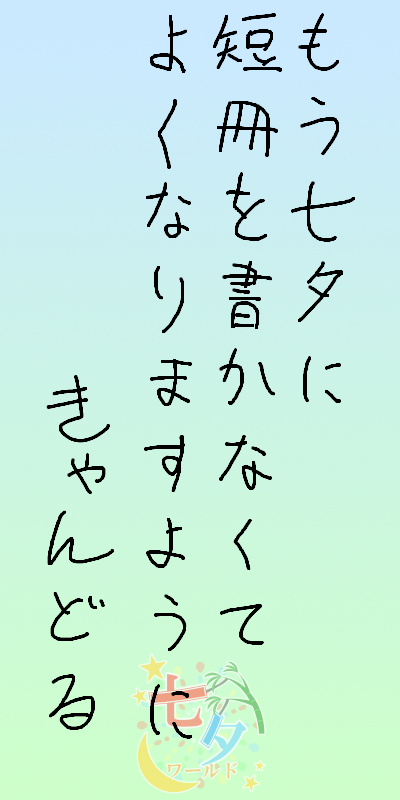 もう七夕に
短冊を書かなくて
よくなりますように
きゃんどる
七夕
ワールド